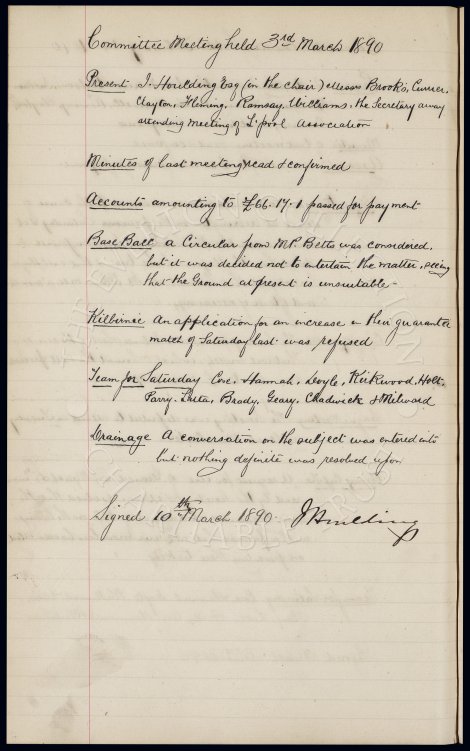 Committee Meeting held 3rd March 1890
Present J. Houlding Esq (in the chair) Messrs Brooks, Currer,
Clayton, Fleming, Ramsay, Williams, the Secretary away
attending meeting of L'pool Association
Minutes of last meeting read & confirmed
Accounts amounting to £66.17.1 passed for payment
Base Ball a Circular from Mr Betts was considered,
but it was decided not to entertain the matter, seeing
that the Ground at present is unsuitable -
Kilbirnie An application for an increase in their guarantee
match of Saturday last was refused
Team for Saturday Cove, Hannah, Doyle, Kirkwood, Holt,
Parry, Latta, Brady, Geary, Chadwick & Milward
Drainage A conversation on the subject was entered into
but nothing definite was resolved upon
Signed 10th March 1890 - J Houlding